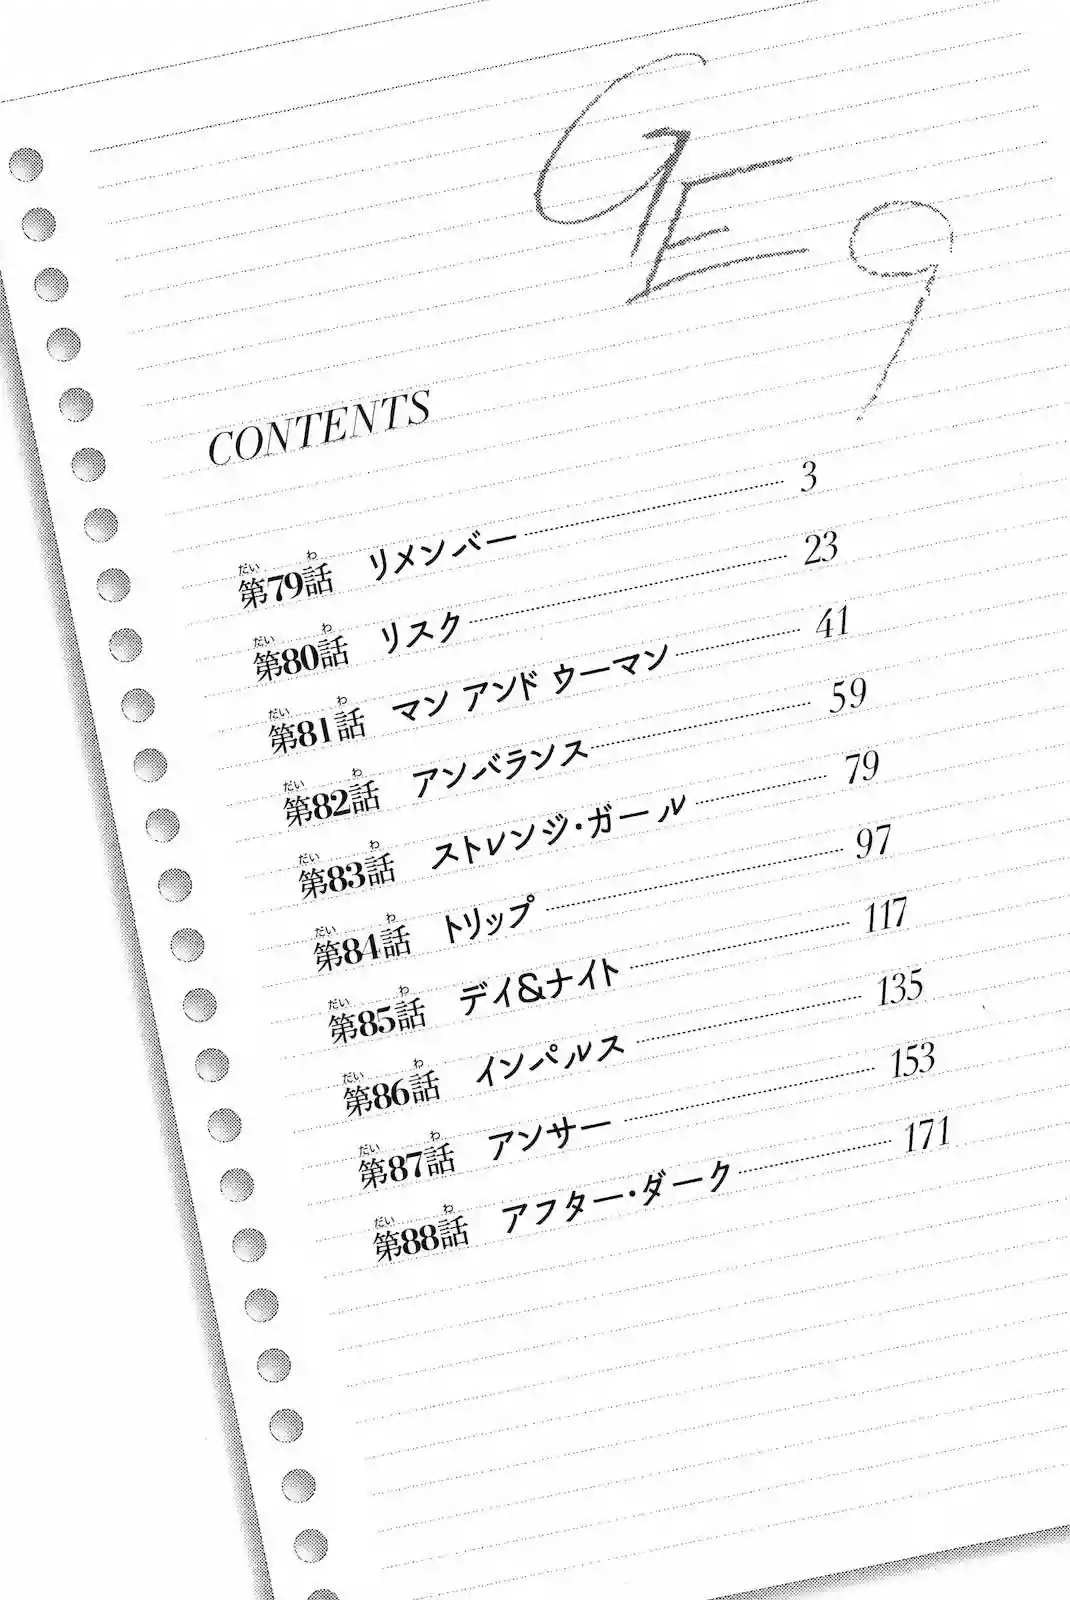 GE-9
CONTENTS
第79話 リメンバー 3
第80話 リスク 23
第81話 マン アンド ウーマン 41
第82話 アンバランス 59
第83話 ストレンジ・ガール 79
第84話 トリップ 97
第85話 デイ&ナイト 117
第86話 インパルス 135
第87話 アンサー 153
第88話 アフター・ダーク 171